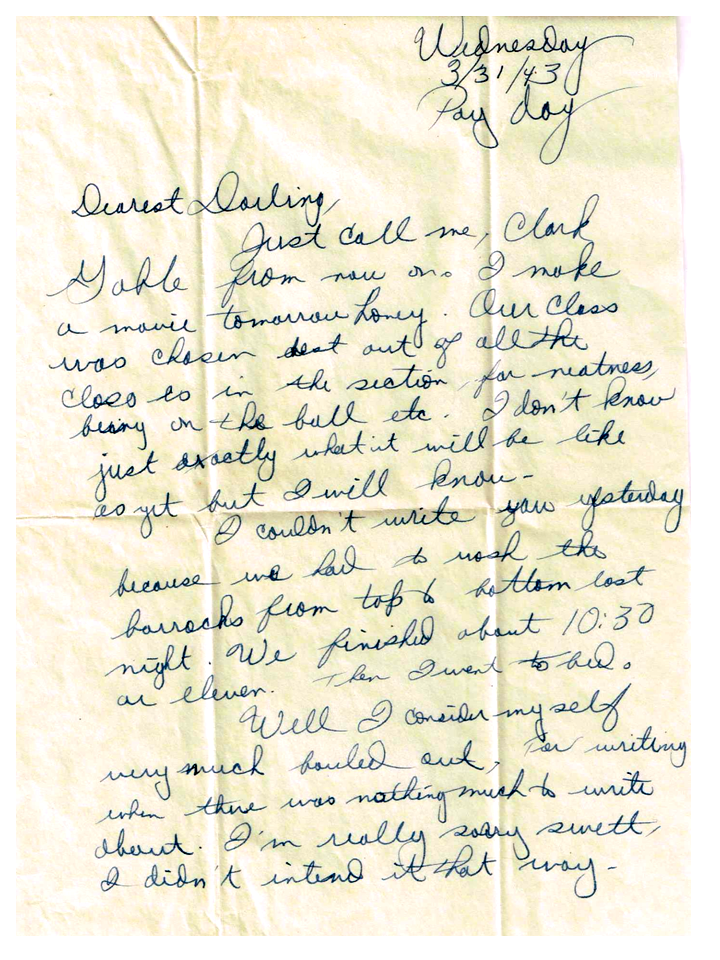 Wednesday
3/31/43
Pay day
Dearest Darling,
Just call me, Clark
Gable from now on. I make
a movie tomorrow honey. Our Class
was chosen best out of all the
class es in the section, for neatness,
being on the ball etc. I don't know
just exactly what it will be like
as yet but I will know -
I couldn't write you yesterday
because we had to wash the
barracks from top to bottom last
night. We finished about 10:30
or eleven. Then I went to bed.
Well I consider my self
very much bauled out, for writing
when there was nothing much to write
about. I'm really sorry swett,
I didn't intend it that way -